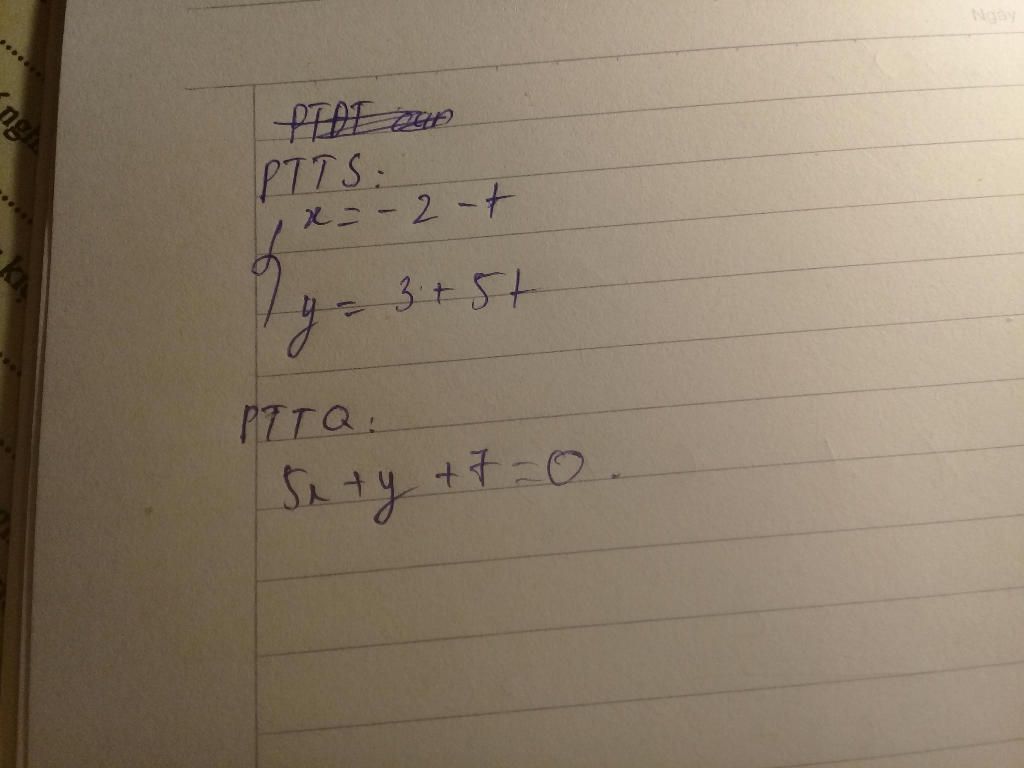 Ngày
PTTS:
x = -2 - t
y = 3 + 5t
PTTQ:
5x + y + 7 = 0.